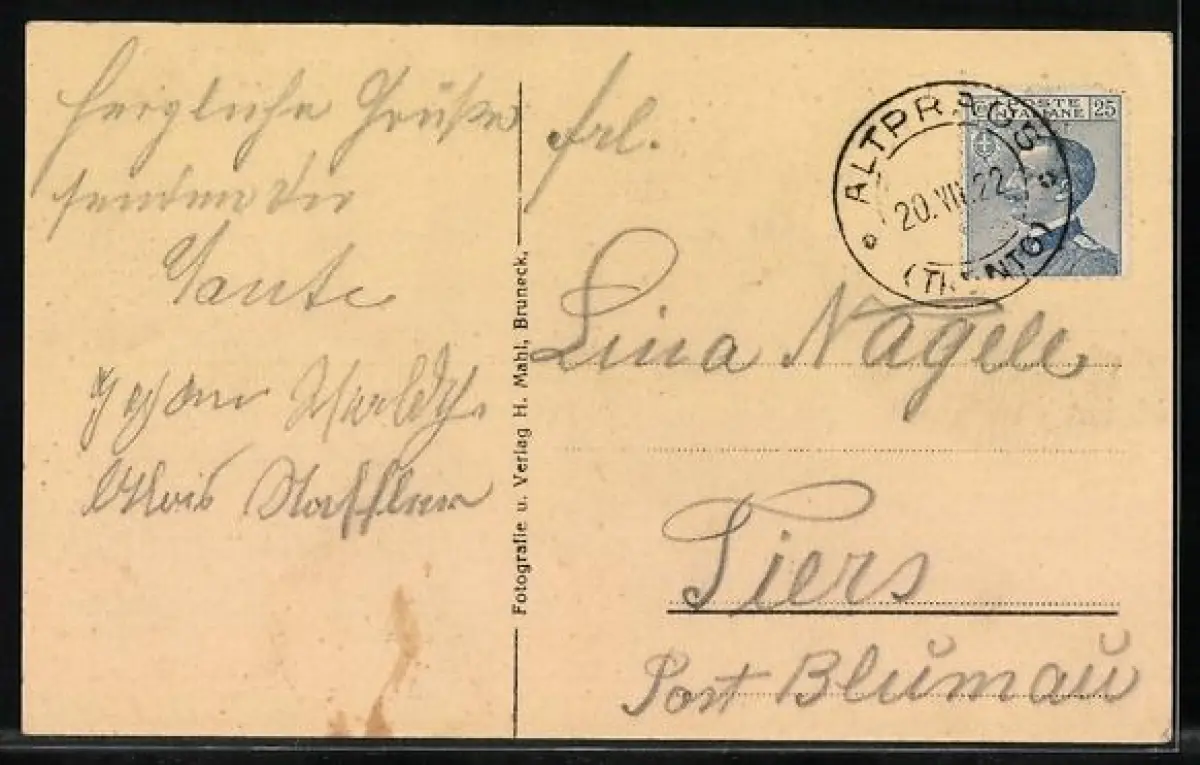 herzliche Grüße
senden dir
Tante
Alois
Fotografie u. Verlag H. Mahl, Bruneck.
POSTE
ITALIANE
25
ALTPRAGS
20.VII.22
(TRENTO)
Frl.
Lina Nägele
Tiers
Post Blumau